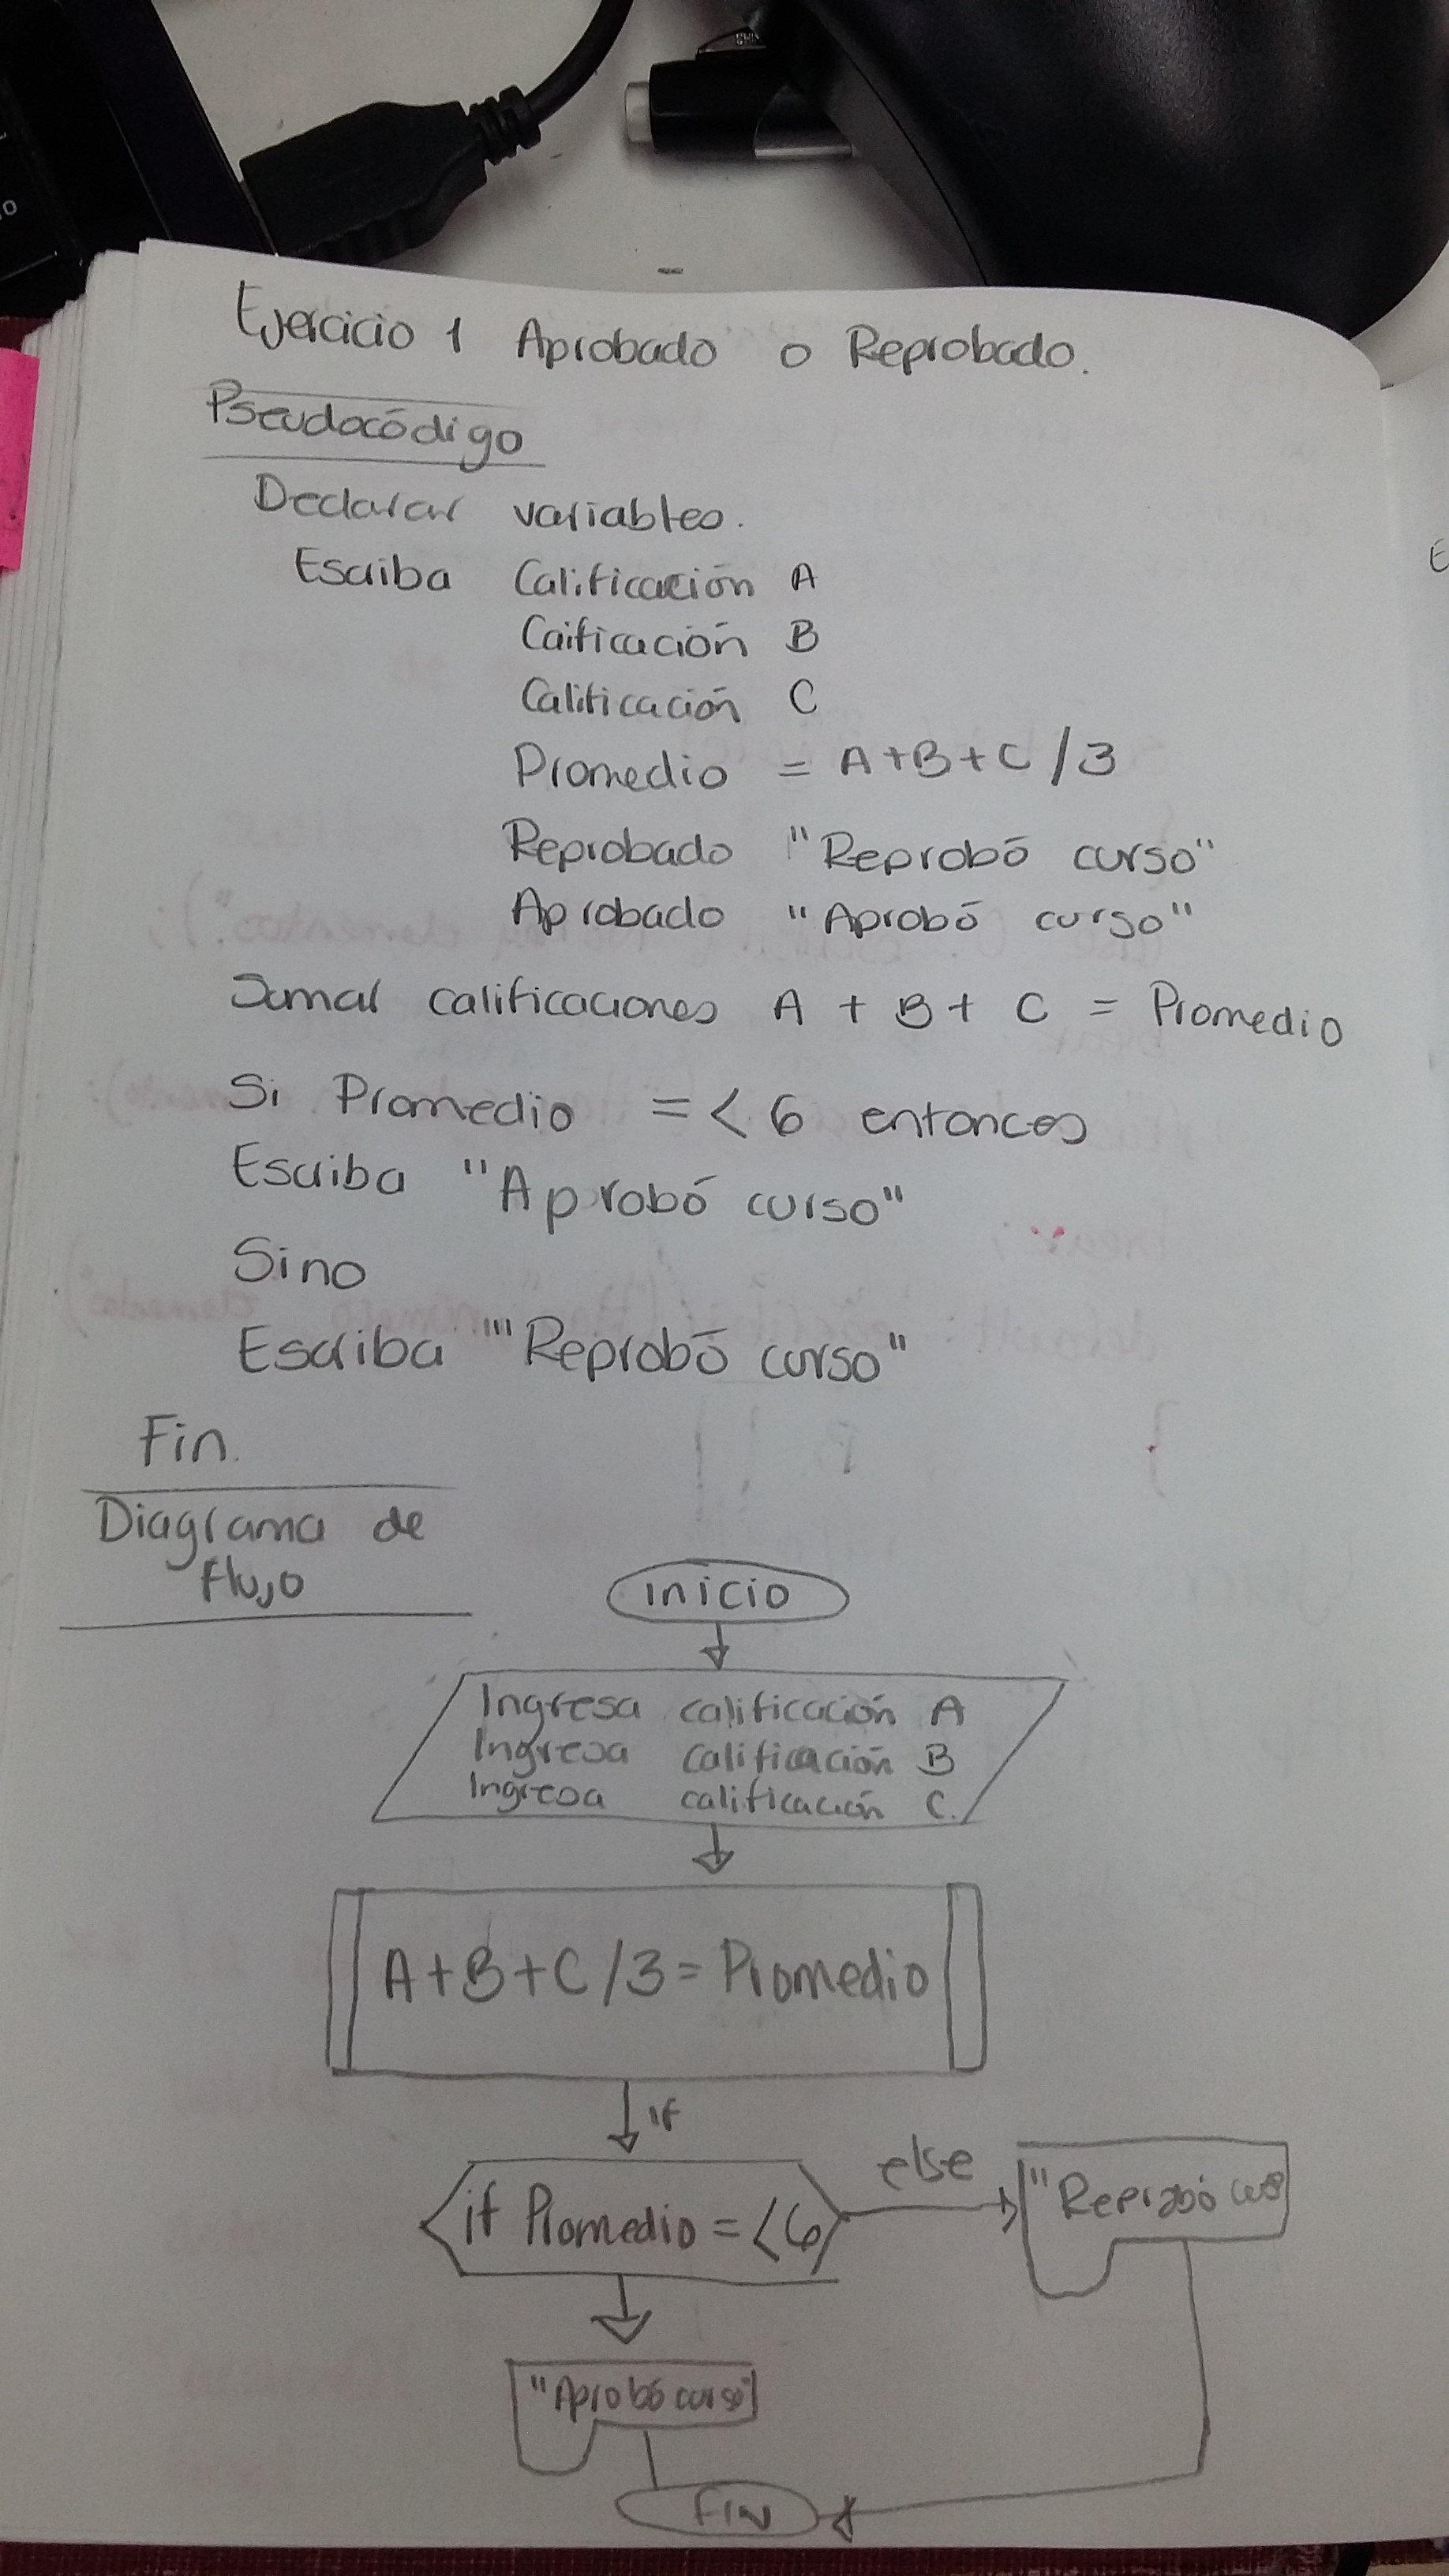 Ejercicio 1 Aprobado o Reprobado.
Pseudocódigo
Declarar variables.
Escriba Calificación A
Caificación B
Calificación C
Promedio = A+B+C/3
Reprobado "Reprobó curso"
Aprobado "Aprobó curso"
Sumar calificaciones A + B + C = Promedio
Si Promedio =< 6 entonces
Escriba "Aprobó curso"
Sino
Escriba "Reprobó curso"
Fin.
Diagrama de
flujo
inicio
Ingresa calificación A
Ingresa calificación B
Ingresa calificación C.
A+B+C/3=Promedio
if
if Promedio =<6
else
"Reprobó
"Aprobó curso"
FIN